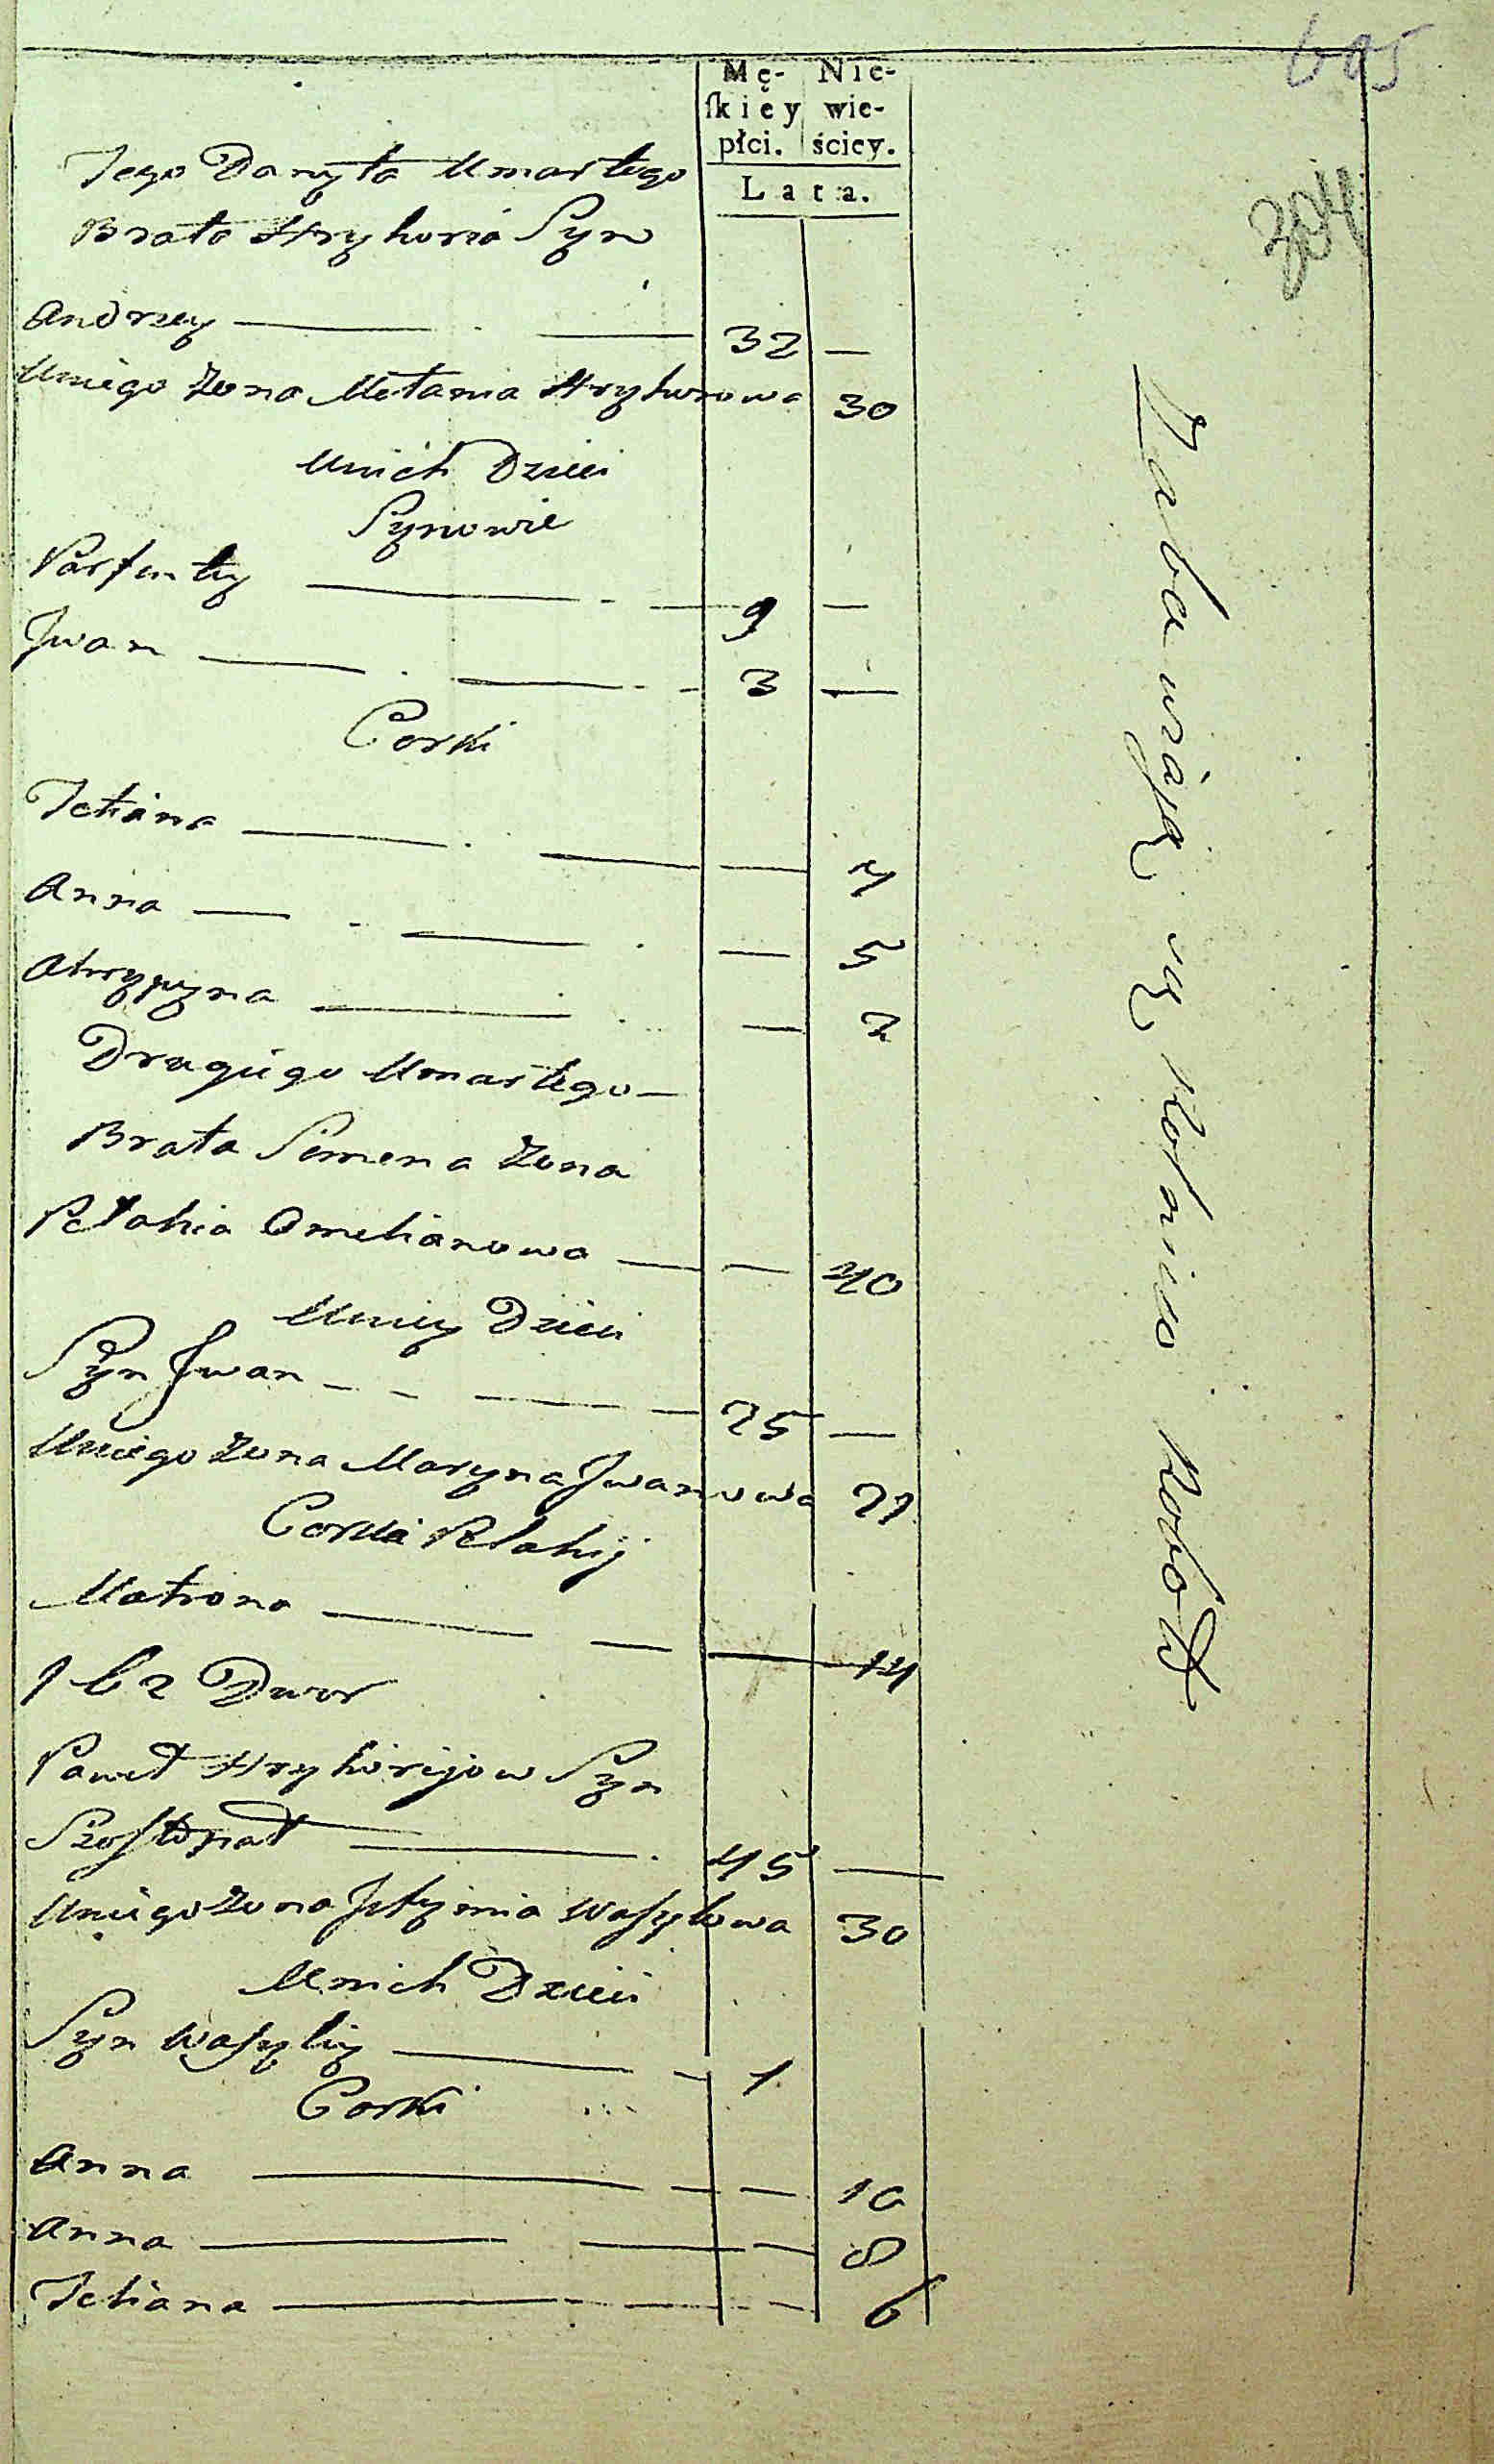 605
304
Mę-
ſkiey
płci.
Nie-
wie-
ściey.
Lata.
Jego Daniyła Umarłego
Brata Hryhoria Syn
Andrzey — 32 —
Uniego Zona Mełania Hryhorowa 30
Unich Dzieci
Synowie
Parfenty — 9 —
Jwan — 3 —
Corki
Tetiana — 7
Anna — 5
Ahrypyna — 2
Drugiego Umarłego —
Brata Semena Zona
Pełahia Omelianowa — 40
Uniey Dzieci
Syn Jwan — 25 —
Uniego Zona Maryna Jwanowa 21
Corka Pelahij
Matrona — 14
162 Dwor
Paweł Hryhorijow Syn
Szostopał — 45 —
Uniego Zona Justymia Wasylowa 30
Unich Dzieci
Syn Wasyliy — 1
Corki
Anna — 10
Anna — 8
Tetiana — 6
Zabawiają się Rolnictwo